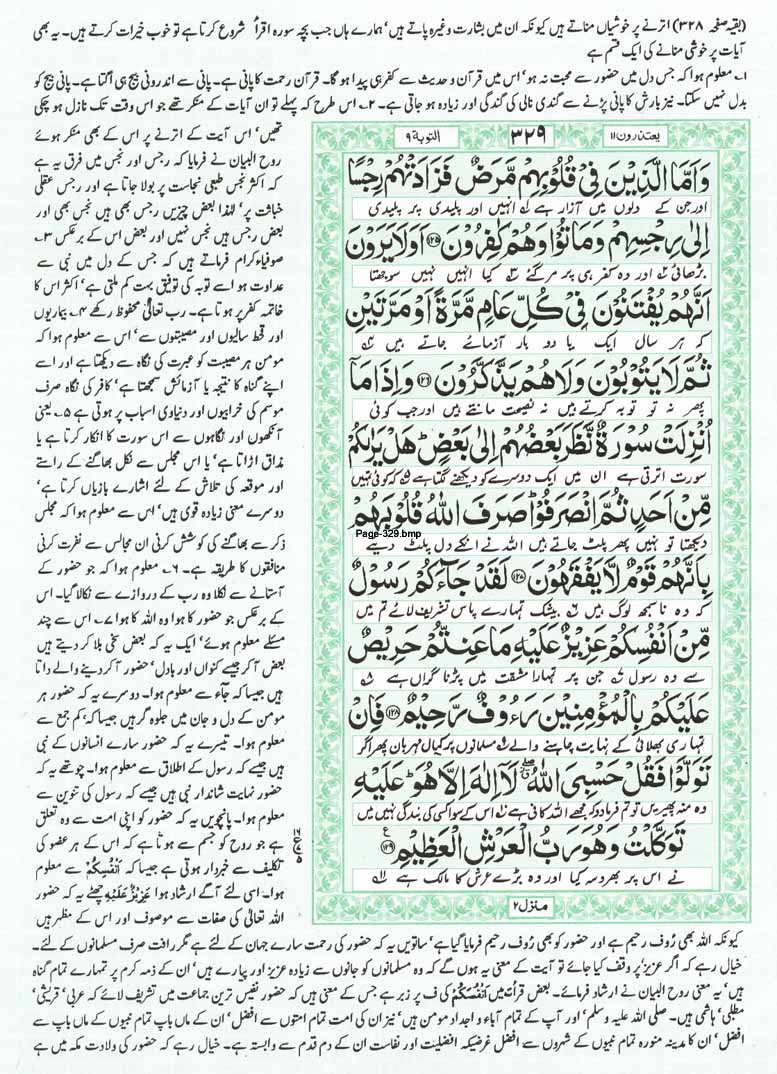 (بقیہ صفحہ ۳۲۸) اترنے پر خوشیاں مناتے ہیں کیونکہ ان میں بشارت وغیرہ پاتے ہیں' ہمارے ہاں جب بچہ سورہ اقرأ شروع کرتا ہے تو خوب خیرات کرتے ہیں۔ یہ بھی
آیات پر خوشی منانے کی ایک قسم ہے
۱۔ معلوم ہوا کہ جس دل میں حضور سے محبت نہ ہو' اس میں قرآن و حدیث سے کفر ہی پیدا ہو گا۔ قرآن رحمت کا پانی ہے۔ پانی سے اندرونی بیج ہی اگتا ہے۔ پانی بیج کو
بدل نہیں سکتا۔ نیز بارش کا پانی پڑنے سے گندی نالی کی گندگی اور زیادہ ہو جاتی ہے۔ ۲۔ اس طرح کہ پہلے تو ان آیات کے منکر تھے جو اس وقت تک نازل ہو چکی
یعتذرون ۱۱
۳۲۹
التوبة ۹
وَاَمَّا الَّذِيْنَ فِيْ قُلُوْبِهِمْ مَّرَضٌ فَزَادَتْهُمْ رِجْسًا
اور جن کے دلوں میں آزار ہے انہیں اور پلیدی پر پلیدی
اِلٰى رِجْسِهِمْ وَمَاتُوْا وَهُمْ كٰفِرُوْنَ ۝۱۲۵ اَوَلَا يَرَوْنَ
بڑھائی اور وہ کفر ہی پر مر گئے کیا انہیں نہیں سوجھتا
اَنَّهُمْ يُفْتَنُوْنَ فِيْ كُلِّ عَامٍ مَّرَّةً اَوْ مَرَّتَيْنِ
کہ ہر سال ایک یا دو بار آزمائے جاتے ہیں
ثُمَّ لَا يَتُوْبُوْنَ وَلَا هُمْ يَذَّكَّرُوْنَ ۝۱۲۶ وَاِذَا مَآ
پھر نہ تو توبہ کرتے ہیں نہ نصیحت مانتے ہیں اور جب کوئی
اُنْزِلَتْ سُوْرَةٌ نَّظَرَ بَعْضُهُمْ اِلٰى بَعْضٍ هَلْ يَرٰىكُمْ
سورت اترتی ہے ان میں ایک دوسرے کو دیکھنے لگتا ہے کہ کوئی تمہیں
مِّنْ اَحَدٍ ثُمَّ انْصَرَفُوْا صَرَفَ اللّٰهُ قُلُوْبَهُمْ
Page-329.bmp
دیکھتا تو نہیں پھر پلٹ جاتے ہیں اللہ نے انکے دل پلٹ دیئے
بِاَنَّهُمْ قَوْمٌ لَّا يَفْقَهُوْنَ ۝۱۲۷ لَقَدْ جَآءَكُمْ رَسُوْلٌ
کہ وہ ناسمجھ لوگ ہیں بیشک تمہارے پاس تشریف لائے تم میں
مِّنْ اَنْفُسِكُمْ عَزِيْزٌ عَلَيْهِ مَا عَنِتُّمْ حَرِيْصٌ
سے وہ رسول جن پر تمہارا مشقت میں پڑنا گراں ہے
عَلَيْكُمْ بِالْمُؤْمِنِيْنَ رَءُوْفٌ رَّحِيْمٌ ۝۱۲۸ فَاِنْ
تمہاری بھلائی کے نہایت چاہنے والے مسلمانوں پر کمال مہربان پھر اگر
تَوَلَّوْا فَقُلْ حَسْبِيَ اللّٰهُ لَآ اِلٰهَ اِلَّا هُوَ عَلَيْهِ
وہ منہ پھیریں تو تم فرمادو کہ مجھے اللہ کافی ہے اس کے سوا کسی کی بندگی نہیں میں
تَوَكَّلْتُ وَهُوَ رَبُّ الْعَرْشِ الْعَظِيْمِ ۝۱۲۹
نے اسی پر بھروسہ کیا اور وہ بڑے عرش کا مالک ہے
منزل ۲
تھیں' اس آیت کے اترنے پر اس کے بھی منکر ہوئے
روح البیان نے فرمایا کہ رجس اور نجس میں فرق یہ ہے
کہ اکثر نجس طبعی نجاست پر بولا جاتا ہے اور رجس عقلی
خباثت پر' لہذا بعض چیزیں رجس بھی ہیں نجس بھی اور
بعض رجس ہیں نجس نہیں اور بعض اس کے برعکس ۳۔
صوفیاء کرام فرماتے ہیں کہ جس کے دل میں نبی سے
عداوت ہو اسے توبہ کی توفیق بہت کم ملتی ہے' اکثر اس کا
خاتمہ کفر پر ہوتا ہے۔ رب تعالیٰ محفوظ رکھے ۴۔ بیماریوں
اور قحط سالیوں اور مصیبتوں سے' اس سے معلوم ہوا کہ
مومن ہر مصیبت کو عبرت کی نگاہ سے دیکھتا ہے اور اسے
اپنے گناہ کا نتیجہ یا آزمائش سمجھتا ہے' کافر کی نگاہ صرف
موسم کی خرابیوں اور دنیاوی اسباب پر ہوتی ہے ۵۔ یعنی
آنکھوں اور نگاہوں سے اس سورت کا انکار کرتا ہے یا
مذاق اڑاتا ہے' یا اس مجلس سے نکل بھاگنے کے راستے
اور موقعہ کی تلاش کے لئے اشارے بازیاں کرتا ہے'
دوسرے معنی زیادہ قوی ہیں' اس سے معلوم ہوا کہ مجلس
ذکر سے بھاگنے کی کوشش کرنی ان مجالس سے نفرت کرنی
منافقوں کا طریقہ ہے۔ ۶۔ معلوم ہوا کہ جو حضور کے
آستانے سے نکلا وہ رب کے دروازے سے نکالا گیا۔ اس
کے برعکس جو حضور کا ہوا وہ اللہ کا ہوا ۷۔ اس سے چند
مسئلے معلوم ہوئے' ایک یہ کہ بعض سخی بلا کر دیتے ہیں
بعض آ کر جیسے کنواں اور بادل' حضور آ کر دینے والے داتا
ہیں جیسا کہ جآء سے معلوم ہوا۔ دوسرے یہ کہ حضور ہر
مومن کے دل و جان میں جلوہ گر ہیں جیسا کہ کم جمع سے
معلوم ہوا۔ تیسرے یہ کہ حضور سارے انسانوں کے نبی
ہیں جیسے کہ رسول کے اطلاق سے معلوم ہوا۔ چوتھے یہ کہ
حضور نہایت شاندار نبی ہیں جیسے کہ رسول کی تنوین سے
معلوم ہوا۔ پانچویں یہ کہ حضور کو اپنی امت سے وہ تعلق
ہے جو روح کو جسم سے ہوتا ہے کہ اس کے ہر عضو کی
تکلیف سے خبردار ہوتی ہے جیسا کہ اَنْفُسِكُمْ سے معلوم
ہوا۔ اسی لئے آگے ارشاد ہوا عَزِيْزٌ عَلَيْهِ چھٹے یہ کہ حضور
اللہ تعالٰی کی صفات سے موصوف اور اس کے مظہر ہیں
کیونکہ اللہ بھی رؤف رحیم ہے اور حضور کو بھی رؤف رحیم فرمایا گیا ہے' ساتویں یہ کہ حضور کی رحمت سارے جہان کے لئے ہے مگر رافت صرف مسلمانوں کے لئے۔
خیال رہے کہ اگر عزیز پر وقف کیا جائے تو آیت کے معنی یہ ہوں گے کہ وہ مسلمانوں کو جانوں سے زیادہ عزیز اور پیارے ہیں' ان کے ذمہ کرم پر تمہارے تمام گناہ
ہیں' یہ معنی روح البیان نے ارشاد فرمائے۔ بعض قرأت میں اَنْفَسِكُمْ کی ف پر زبر ہے جس کے معنی ہیں کہ حضور نفیس ترین جماعت میں تشریف لائے کہ عربی' قریشی'
مطلبی' ہاشمی ہیں۔ صلی اللہ علیہ وسلم' اور آپ کے تمام آباء و اجداد مومن ہیں' نیز ان کی امت تمام امتوں سے افضل' ان کے ماں باپ تمام نبیوں کے ماں باپ سے
افضل' ان کا مدینہ منورہ تمام نبیوں کے شہروں سے افضل غرضیکہ افضلیت اور نفاست ان کے دم قدم سے وابستہ ہے۔ خیال رہے کہ حضور کی ولادت مکہ میں ہے